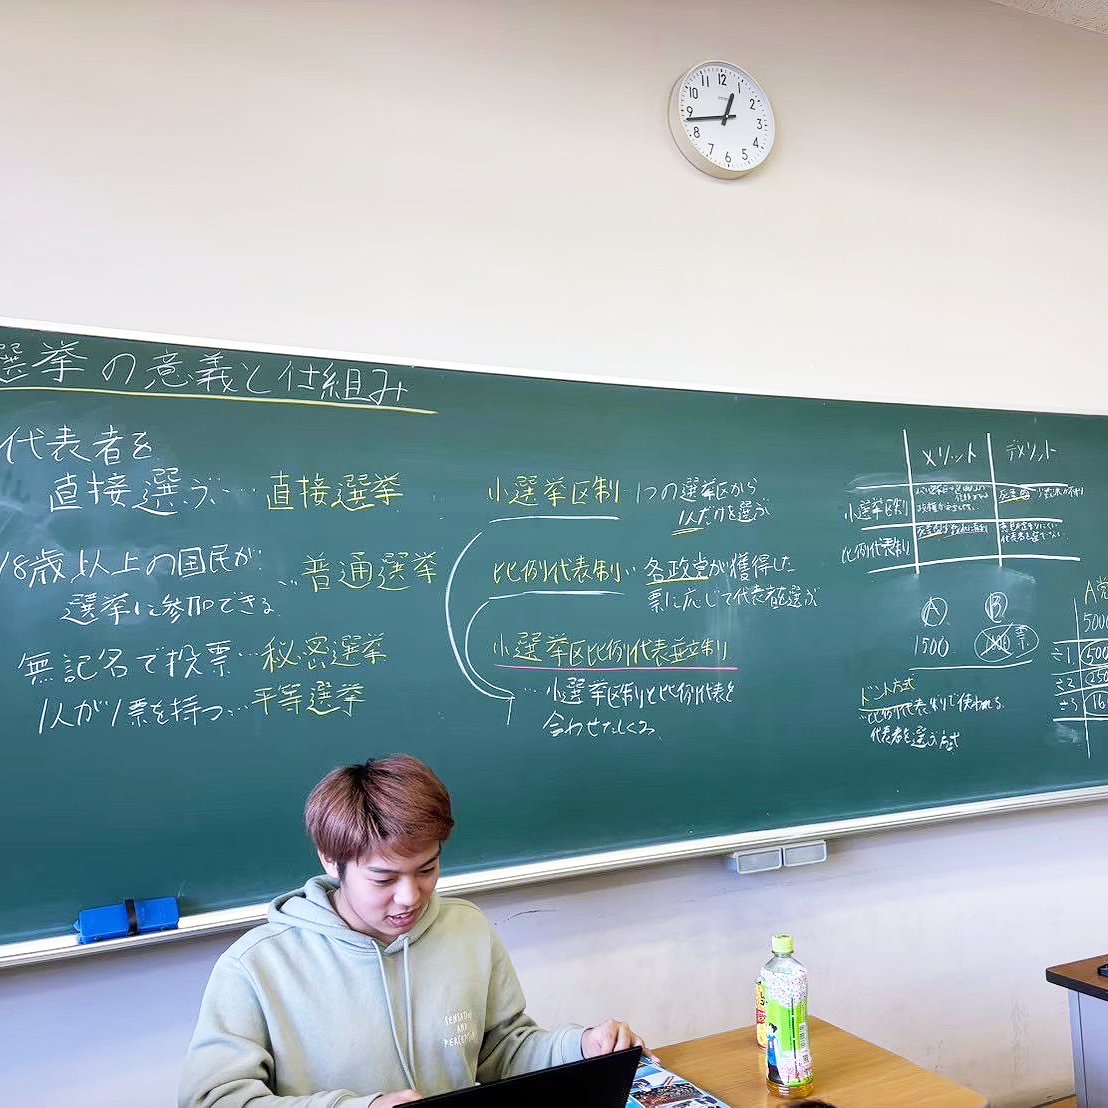 選挙の意義と仕組み
代表者を
直接選ぶ… 直接選挙
18歳以上の国民が
選挙に参加できる … 普通選挙
無記名で投票… 秘密選挙
1人が1票を持つ… 平等選挙
小選挙区制 1つの選挙区から
1人だけを選ぶ
比例代表制… 各政党が獲得した
票に応じて代表者を選ぶ
小選挙区比例代表並立制
…小選挙区制と比例代表を
合わせたしくみ
メリット デメリット
小選挙区制
比例代表制
A B
1500 票
ドント方式
…比例代表制で使われる
代表者を選ぶ方式
A党
5000
÷1
÷2
÷3
12 1 2 3 4 5 6 7 8 9 10 11
SENSATION
AND